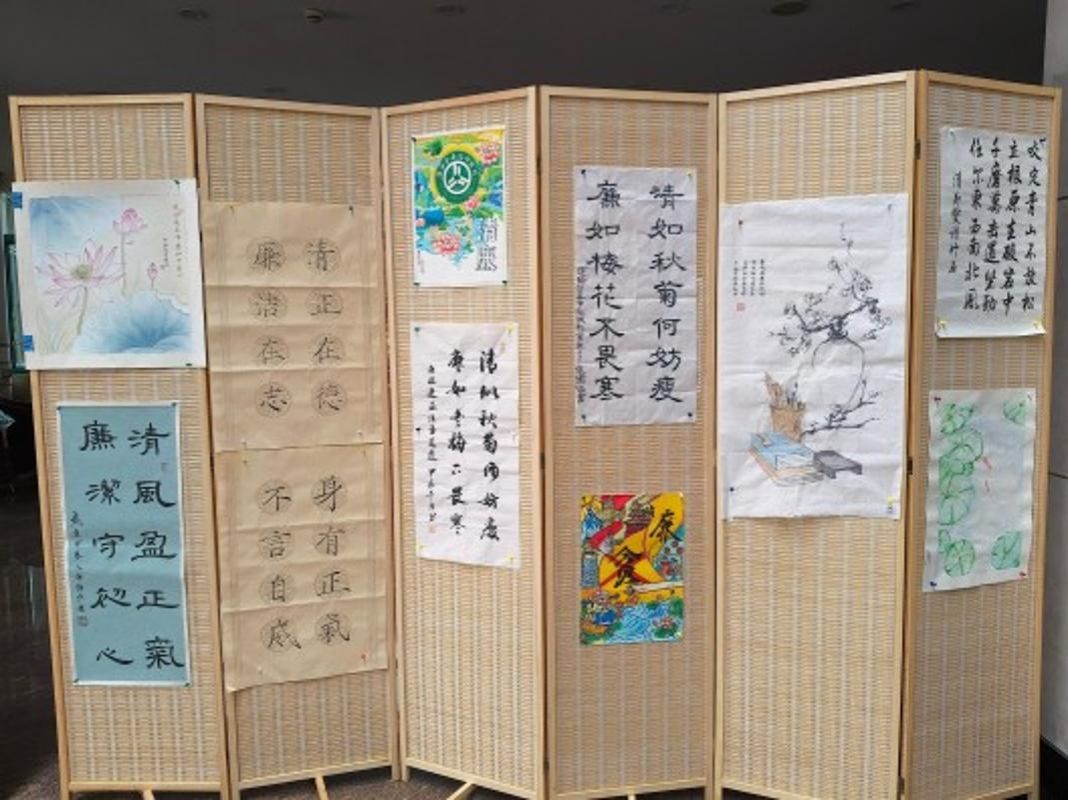 清風盈正氣
廉潔守初心
清正在德
廉洁在志
身有正氣
不言自威
清廉
清似秋菊何妨瘦
廉如梅不畏寒
清如秋菊何妨瘦
廉如梅花不畏寒
廉
贪
咬定青山不放松
立根原在破岩中
千磨萬击還坚劲
任尔東西南北風